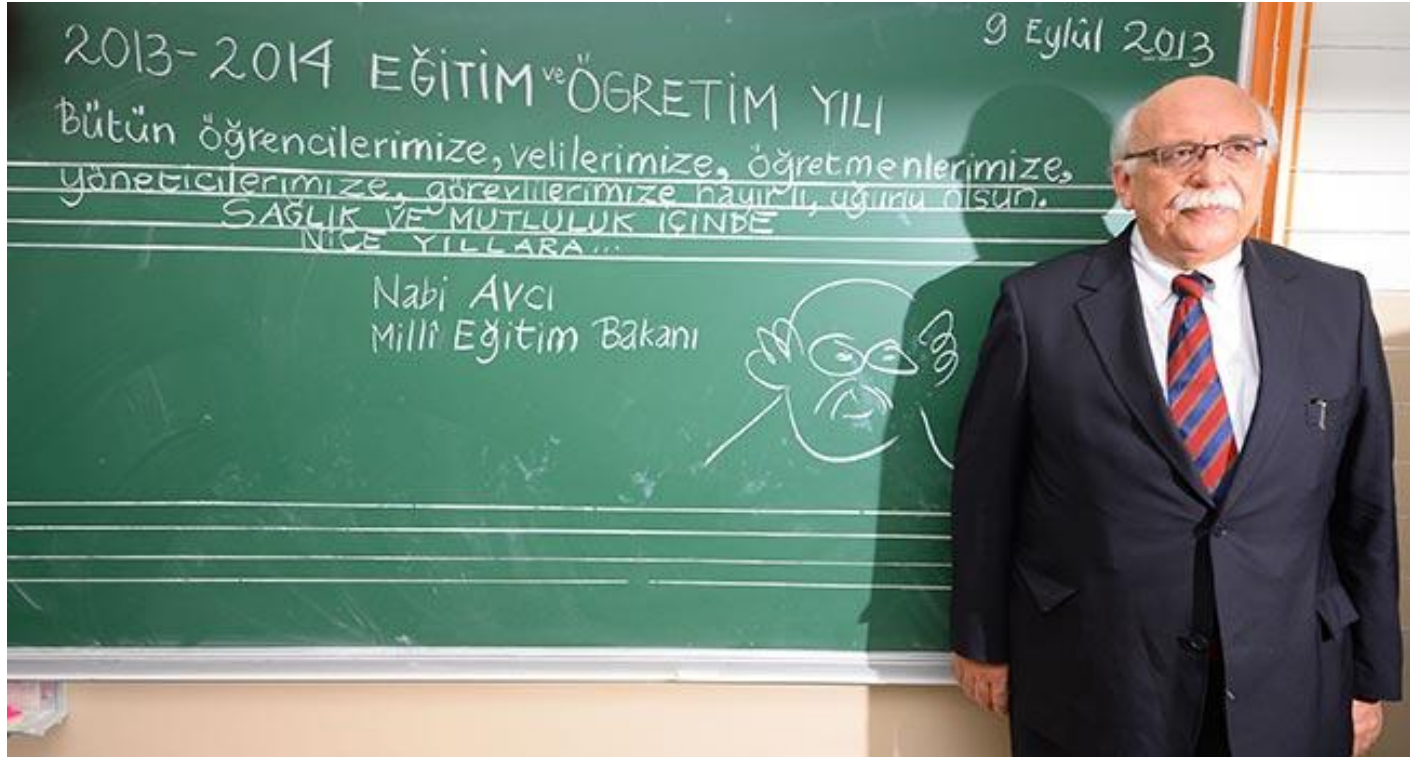 9 Eylûl 2013
2013-2014 EĞİTİM ve ÖGRETİM YILI
Bütün öğrencilerimize, velilerimize, öğretmenlerimize,
yöneticilerimize, görevlilerimize hayırlı, uğurlu olsun.
SAĞLIK VE MUTLULUK İÇİNDE
NİCE YILLARA...
Nabi AVCI
Millî Eğitim Bakanı